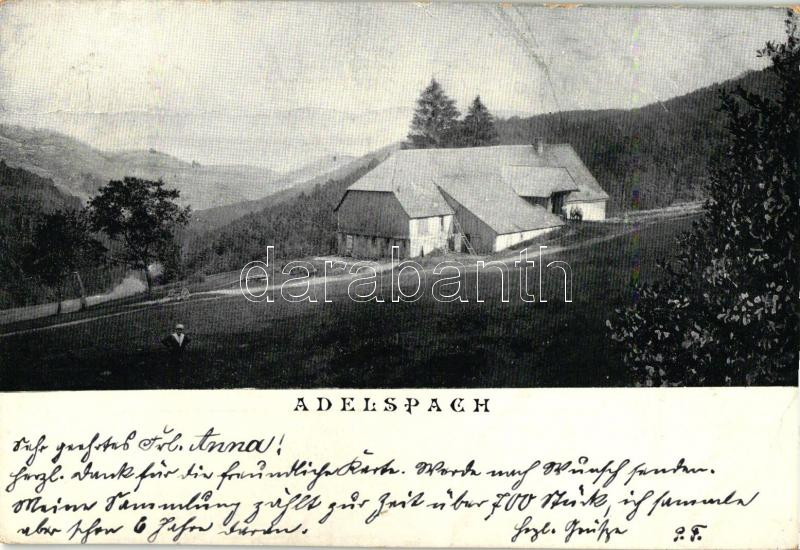 darabanth
ADELSPACH
Sehr geehrtes Frl. Anna!
Herzl. Dank für die freundliche Karte. Werde nach Wunsch senden.
Meine Sammlung zählt zur Zeit über 700 Stück, ich sammle
aber schon 6 Jahre daran. Herzl. Grüsse